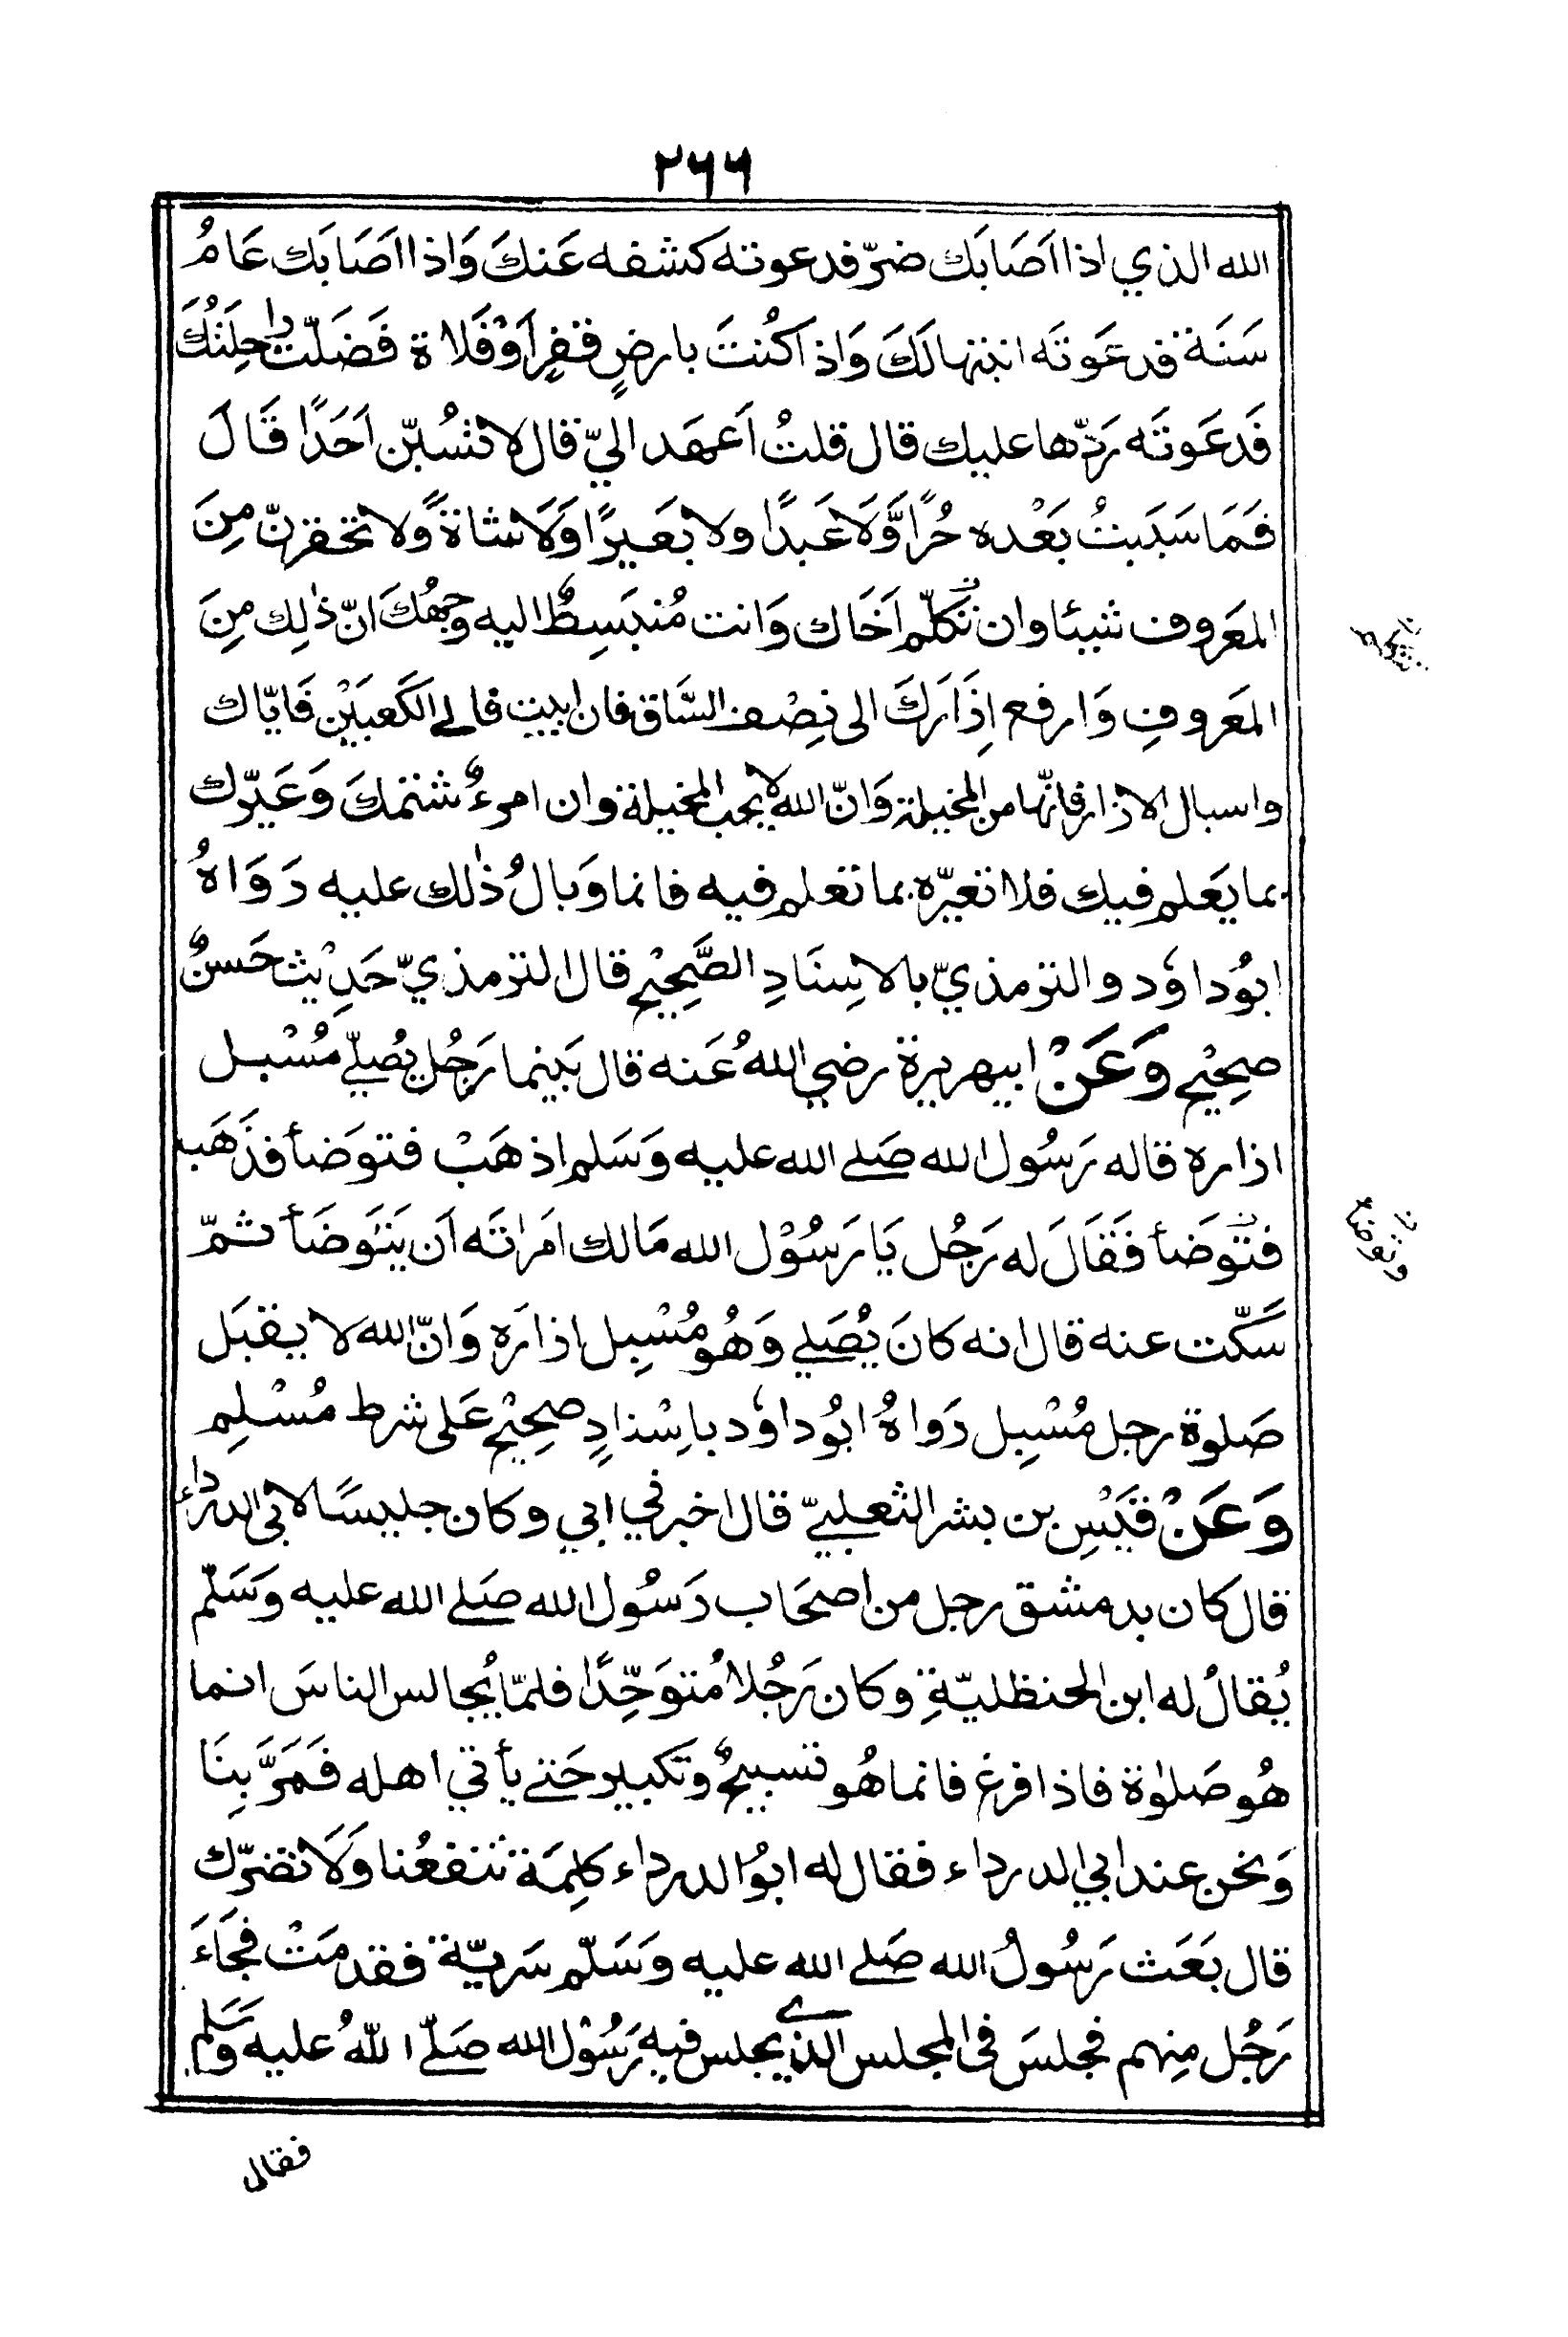 ٢٦٦
الله الذي اذا اَصَابَك ضرّ فدعوته كشفه عَنكَ وَاذا اصَابَك عَامُ
سَنَة فدعَوتَه انبتها لَكَ وَاذا كُنتَ بارضٍ قفرٍ اَوْ فَلاة فَضَلّت راحِلَتُكَ
فَدعَوتَه رَدّها عليك قال قلتُ اَعهَد اليّ قال لا تسُبّن اَحَدًا قَالَ
فَمَا سَبَبتُ بَعْده حُرًّا وَّلَا عَبدًا ولا بعَيرًا وَلَا شاةً وَّلا تحقرنّ مِنَ
المعَروف شيئا وان تكلّم اَخَاك وَانت مُنبَسِطٌ اليه وجهُكَ انّ ذٰلِك مِنَ
المعَروفِ وَارفع اِزَارَكَ الى نِصْف السَّاق فان ابيت فالى الكَعبَيْن فَايّاك
واسبال الازار فانّها من المخيلة وَانّ الله لا يحب المخيلة وان امرءٌ شتمكَ وَعَيّرك
بما يَعلم فيك فلا تعيّره بما تعلم فيه فانما وَبالُ ذٰلك عليه رَوَاهُ
ابُو داوٗد والترمذيّ بالاسِنَادِ الصَّحِيْحِ قال الترمذيّ حَدِيْث حَسنٌ
صحِيْح وَعَنْ ابيهريرة رضي اللهُ عَنه قال بَينما رَجُل يُصلّي مُسْبل
ازاره قاله رَسُول الله صَلى الله عليه وَسَلم اذهَبْ فتوَضأ فذَهَب
فتوَضأ فَقَالَ له رَجُل يَا رَسُوْل الله مَالك امَرْتَه اَن يَتَوضَأ ثمّ
سَكّت عنه قال انه كانَ يُصَلي وَهُو مُسْبِل ازارَه وَانّ الله لا يقبَل
صَلوة رجل مُسْبِل رَواهُ ابُو داوٗد باِسْنادٍ صحِيْح عَلى شرط مُسْلِم
وَعَنْ قَيْسِ بن بشر الثعلبيّ قال اخبرني ابي وكان جليسًا لابى الدرداء
قال كان بدمشق رجل من اصحَاب رَسُول الله صَلى الله عليه وَسَلّم
يُقالُ له ابن الحنظليّةِ وكان رَجُلا مُتوَحِّدًا فلمّا يُجالس الناسَ انما
هُو صَلوٰة فاذا فرغ فانما هُو تسبيحٌ وتكبير حَتى يأتي اهله فَمَرَّ بِنَا
وَنحن عند ابي الدرداء فقال له ابوُ الدرداء كلِمَة تنفعُنا وَلَا تضرّك
قال بَعَث رَسُولُ الله صَلى الله عليه وَسَلّم سَريّة فقدمَتْ فجَاءَ
رَجُل مِنهم فجلسَ فى المجلس الذي يجلس فيه رَسُوْل الله صَلّى اللهُ عليه وَسَلم
فقال